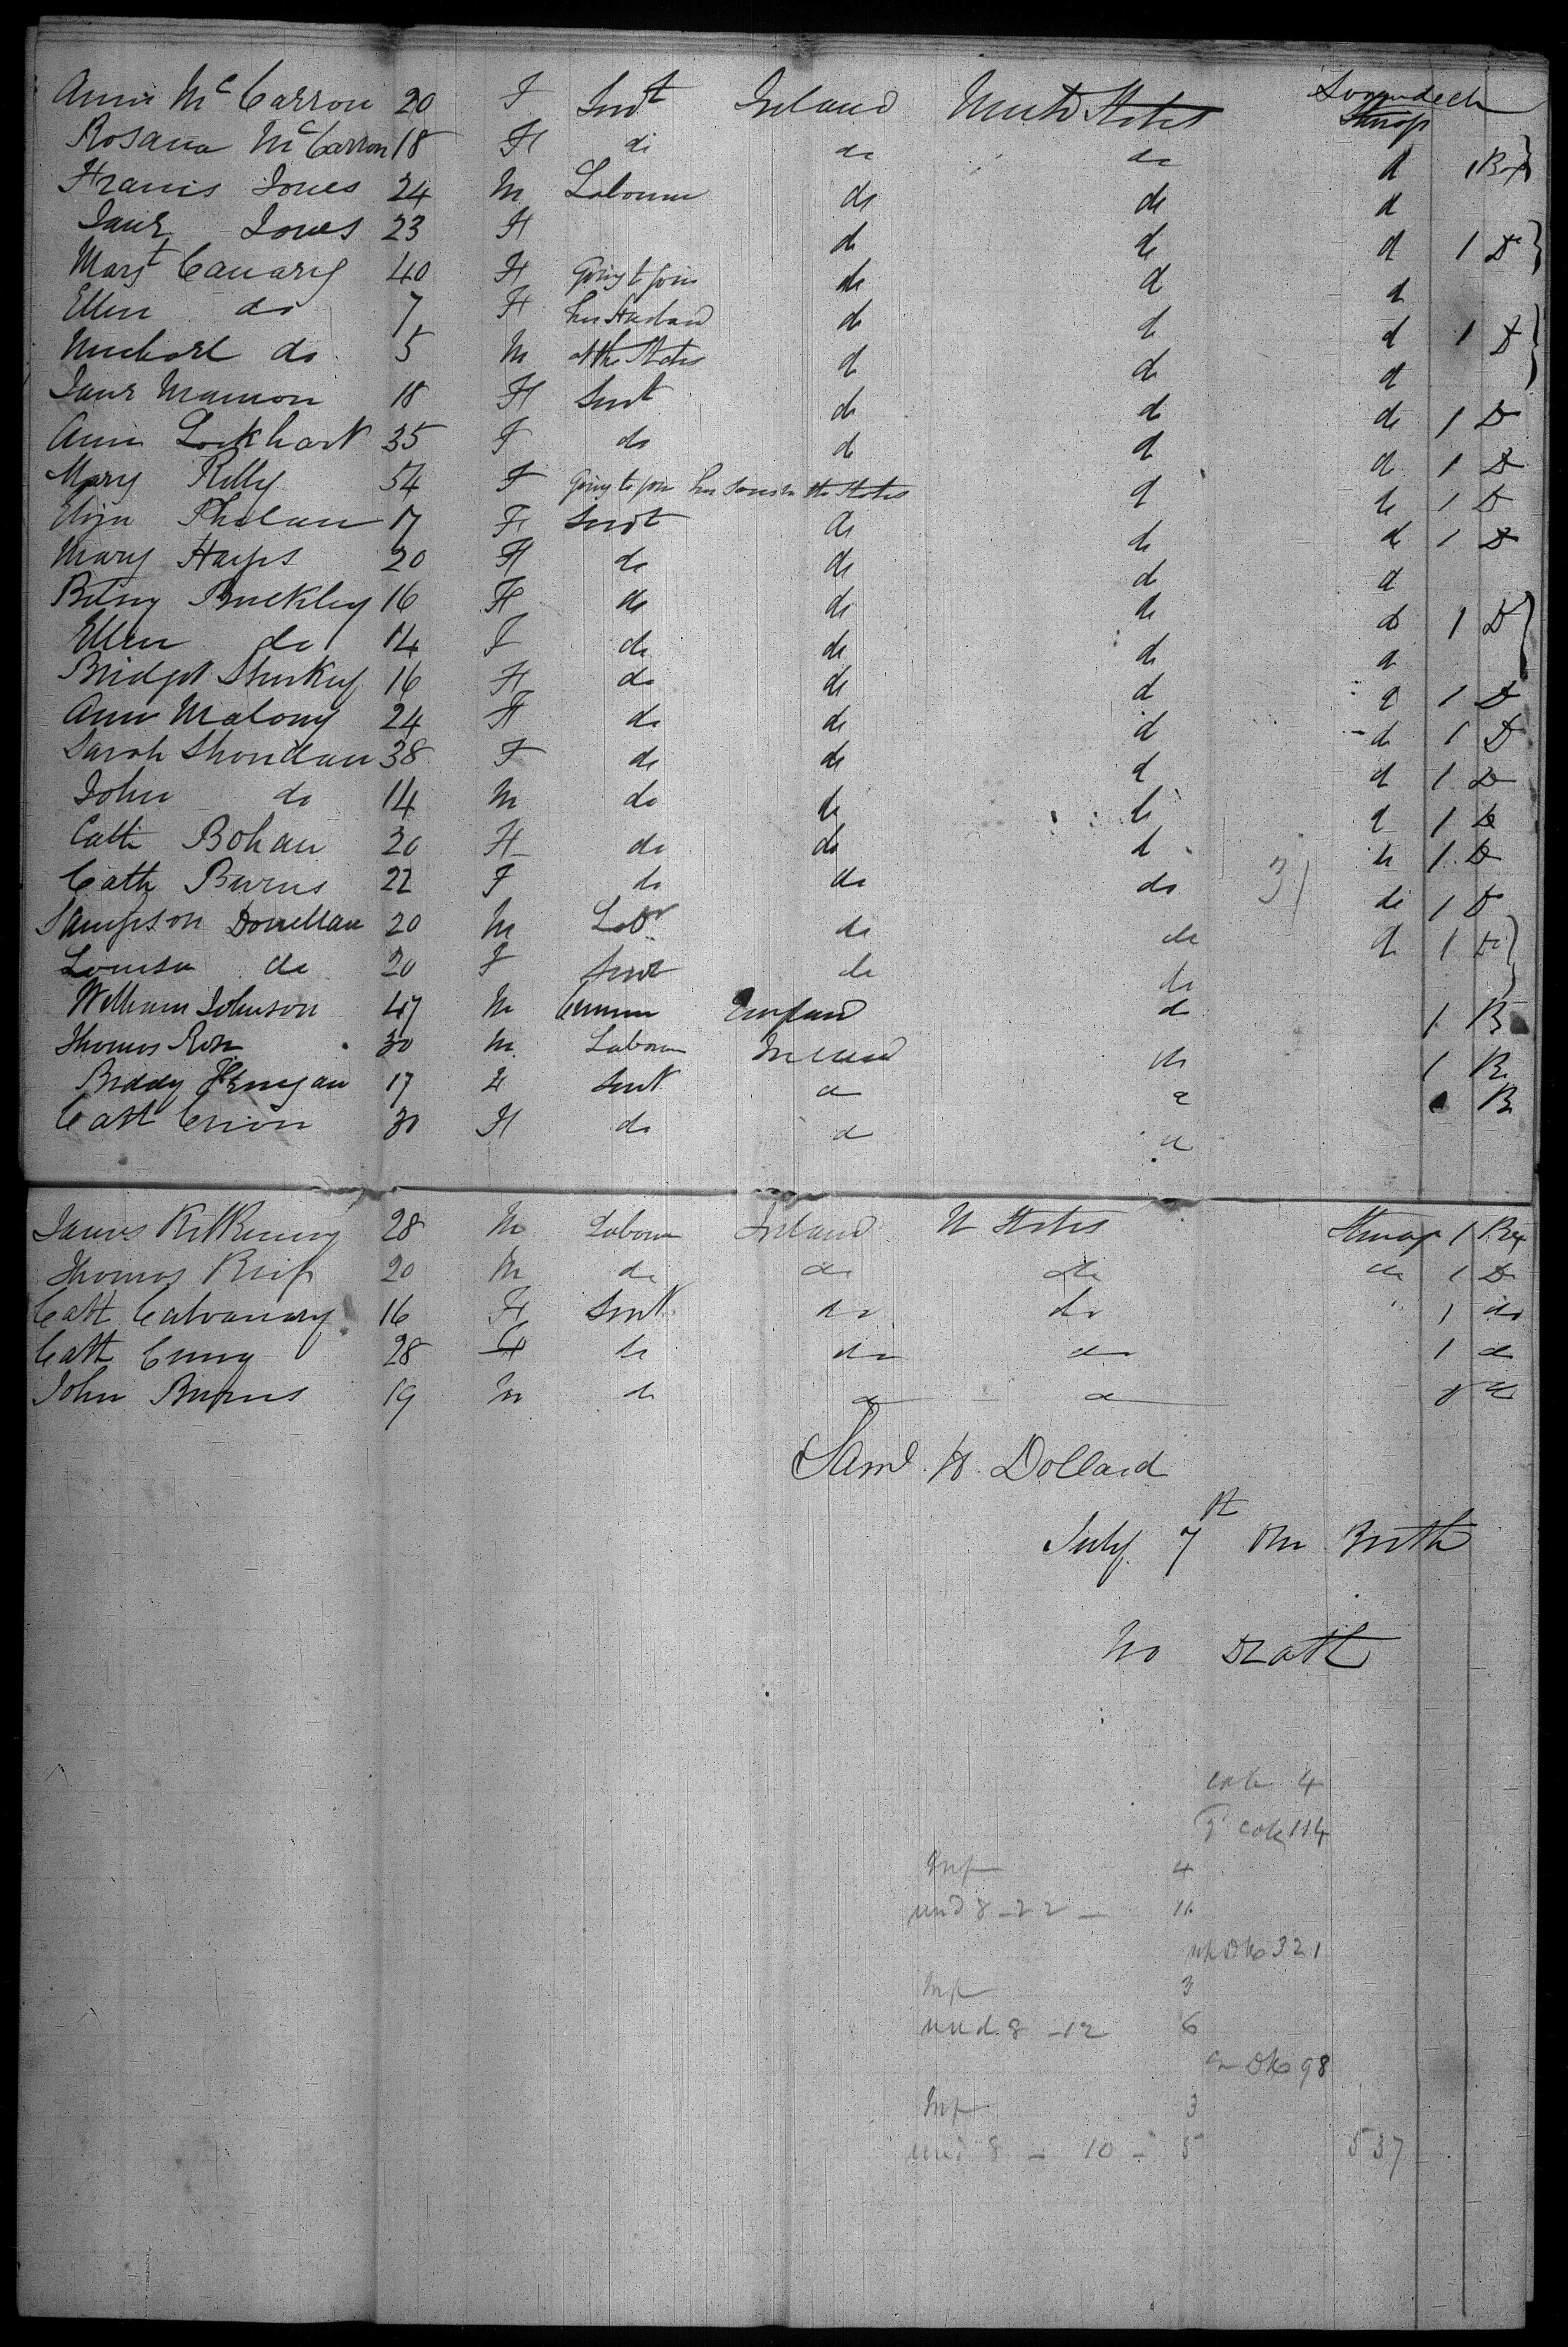 Ann McCarron 20 F Servt Ireland United States Lower deck Steerage
Rosana McCarron 18 F do do do d 1 Box
Francis Jones 24 M Labourer do do d
Jane Jones 23 F do do d 1 D
Margt Canary 40 F Going to join do d d
Ellen do 7 F her Husband do d d 1 D
Michael do 5 M at the States do do d
Jane 18 F Servt do do do 1 D
Ann Lockhart 35 F do do d d 1 D
Mary Kelly 54 F Going to join her Sons in the States d do 1 D
Eliza Phelan 17 F Servt do do do 1 D
Mary Hayes 20 F do do do d
Betsy Buckley 16 F do do do do 1 D
Ellen do 14 F do do do d
Bridget Sharkey 16 F do do d d 1 D
Ann Malony 24 F do do d d 1 D
Sarah 38 F do do d d 1 D
John do 14 M do do do d 1 D
Cath Bohan 20 F do do d do 1 D
Cath Burns 22 F do do do 31 do 1 D
Sampson Donellan 20 M Labr do do d 1 D
Louisa do 20 F Servt do do
William Johnson 47 M England d 1 B
Thomas Ross 30 M Labourer Ireland do 1 B
Biddy 17 F Servt d d B
Cath 30 F do d d
James Kilkenny 28 M Labourer Ireland U States Steerage 1 Box
Thomas 20 M do do do do 1 D
Cath 16 F Servt do do 1 do
Cath 28 F do do do 1 d
John Burns 19 M d d d d
Saml H. Dollard
July 7th One Birth
No Death
cab 4
114
Inf 4
und 8 - 22 - 11
321
Inf 3
und 8 - 12 6
98
Inf 3
und 8 - 10 - 5 537